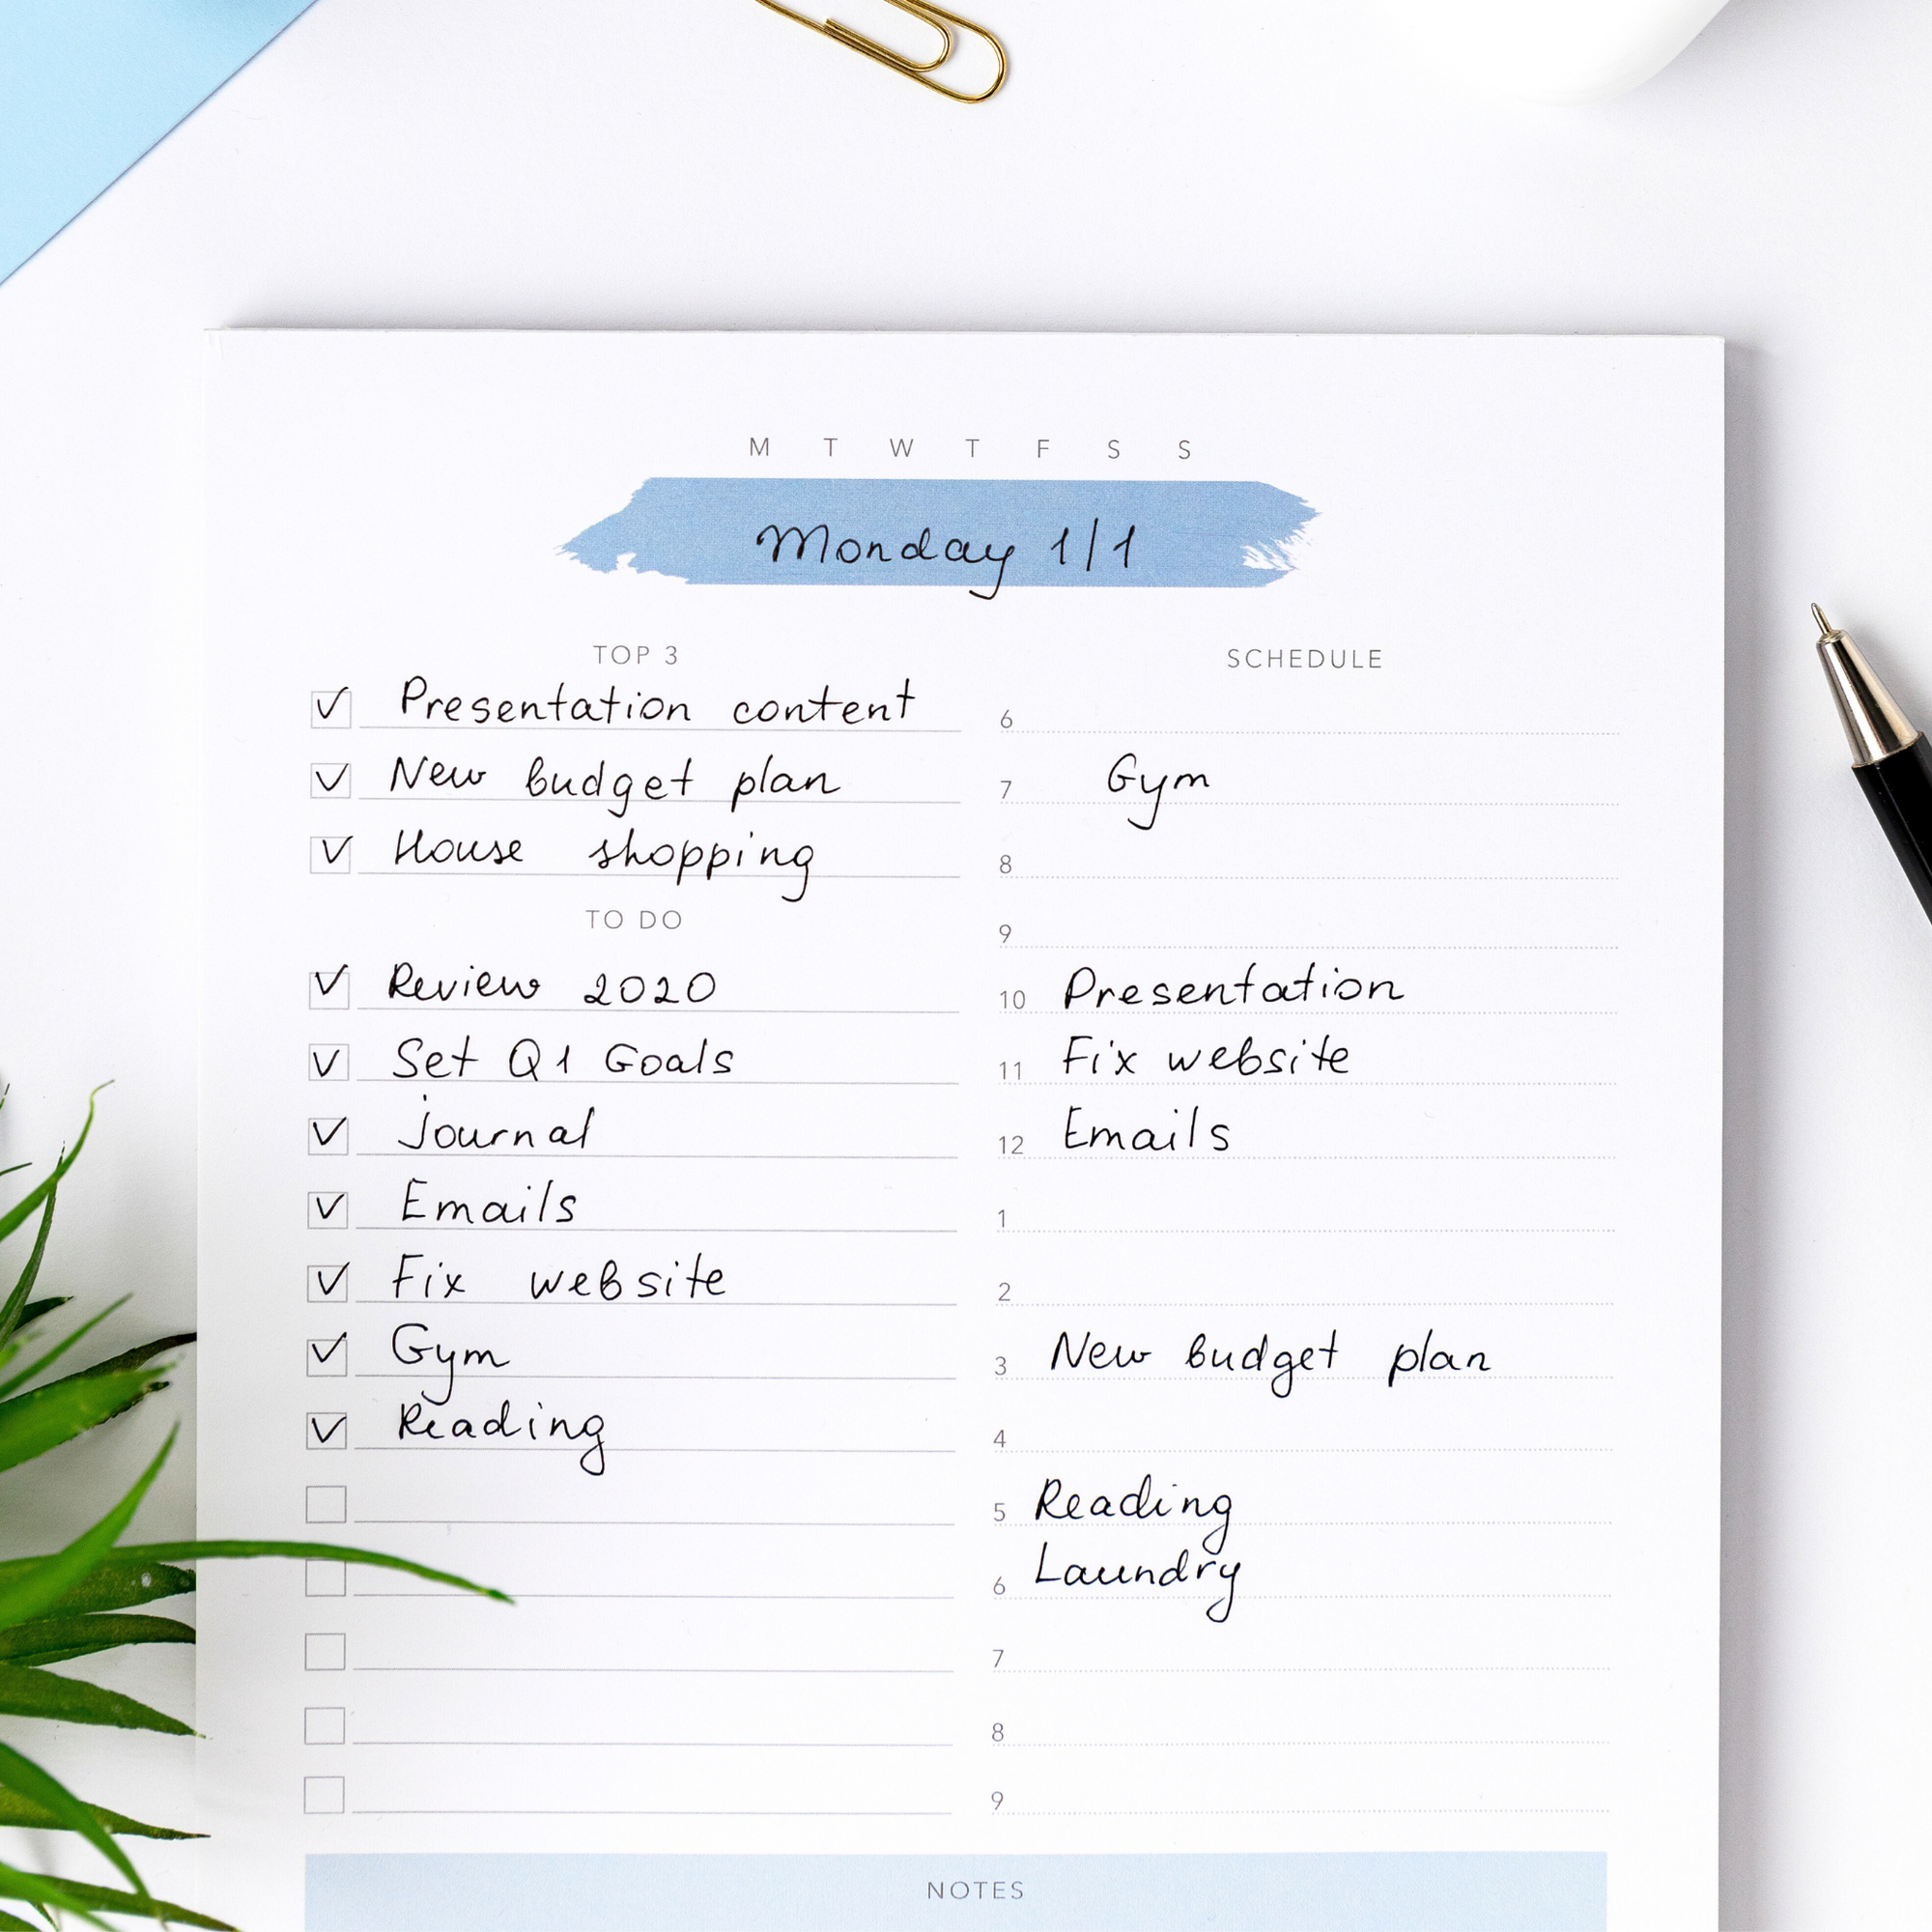 M T W T F S S
Monday 1/1
TOP 3
Presentation content
New budget plan
House shopping
TO DO
Review 2020
Set Q1 Goals
journal
Emails
Fix website
Gym
Reading
SCHEDULE
6
7 Gym
8
9
10 Presentation
11 Fix website
12 Emails
1
2
3 New budget plan
4
5 Reading
6 Laundry
7
8
9
NOTES